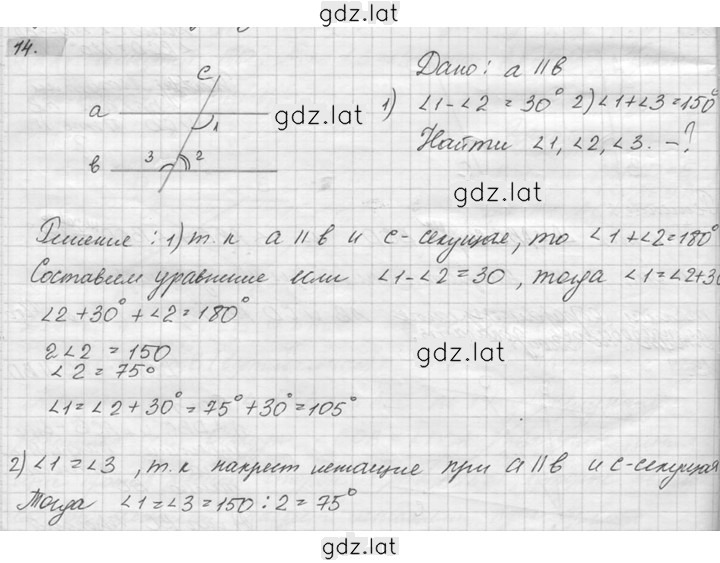 gdz.lat
14.
c
a
1
b
3
2
gdz.lat
Дано: a || b
1) ∠1-∠2 = 30° 2) ∠1+∠3=150°
Найти ∠1, ∠2, ∠3. -?
gdz.lat
Решение: 1) т.к a || b и c-секущие, то ∠1+∠2=180°
Составим уравнение если ∠1-∠2=30, тогда ∠1=∠2+30
∠2+30°+∠2=180°
2∠2 = 150
∠2 = 75°
gdz.lat
∠1=∠2+30°=75°+30°=105°
2) ∠1=∠3, т.к накрест лежащие при a || b и c-секущая
Тогда ∠1=∠3=150:2=75°
gdz.lat